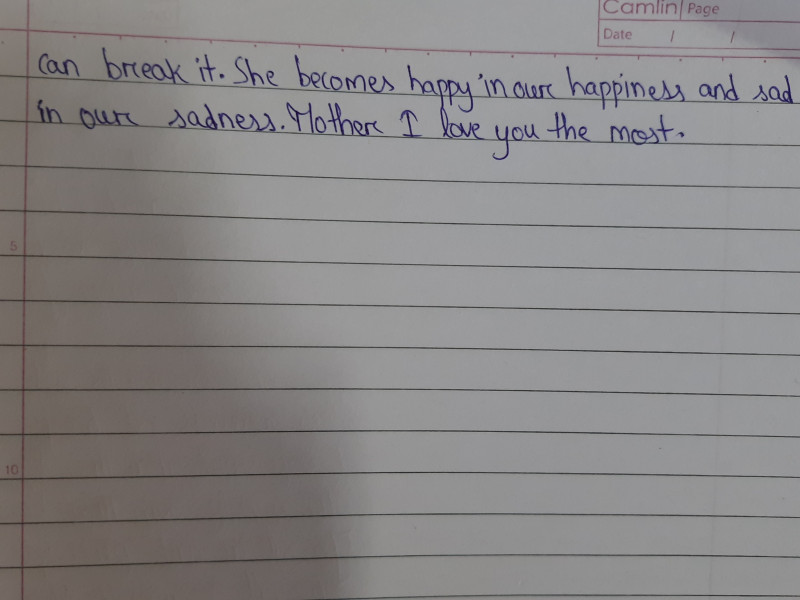 Camlin Page
Date / /
can break it. She becomes happy in our happiness and sad
in our sadness. Mother I love you the most.
5
10